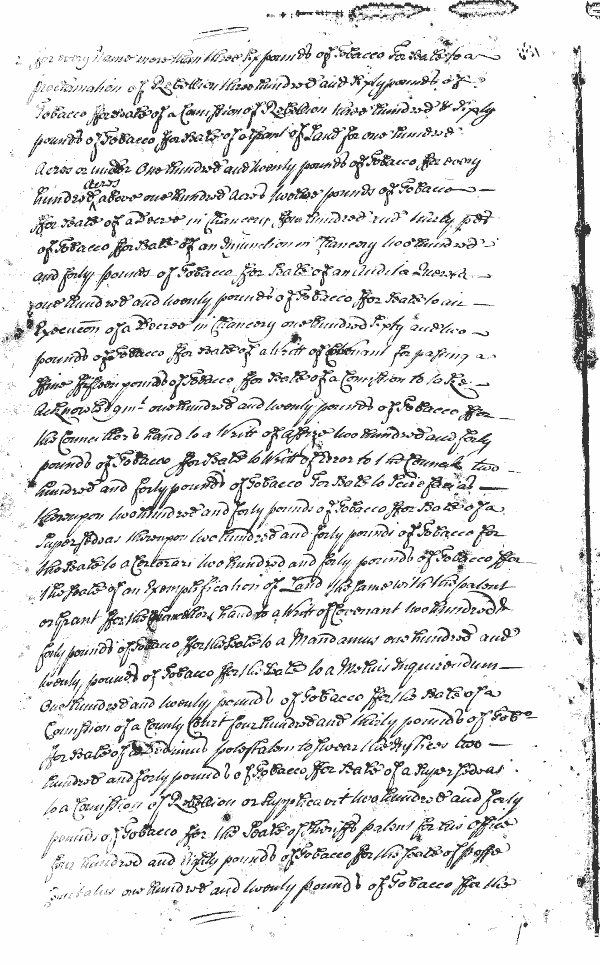 for every Name more than three six pounds of Tobacco For Seale to a
proclamation of Rebellion three hundred and Sixty pounds of
Tobacco ffor Seale of a Comission of Rebellion three hundred & Sixty
pounds of Tobacco ffor Seale of a Grant of Land for one hundred
Acres or under One hundred and twenty pounds of Tobacco, ffor every
hundred Acres above one hundred Acres twelve pounds of Tobacco
ffor Seale of a Decree in Chancery, four hundred and thirty pds
of Tobacco ffor Seale of an Injunction in Chancery two hundred
and forty pounds of Tobacco ffor Seale of an Audita Querela
one hundred and twenty pounds of Tobacco ffor Seale to an
Execucon of a Decree in Chancery one hundred Sixty and two
pounds of Tobacco ffor Seale of a Writt of Covenant for passing a
ffine ffifteen pounds of Tobacco ffor Seale of a Comistion to take
Acknowledgmt. one hundred and twenty pounds of Tobacco ffor
the Councillors hand to a Writt of Assize two hundred and forty
pounds of Tobacco ffor Seale to Writt of Error to the two
hundred and forty pounds of Tobacco For Seale to Scire facias
thereupon two hundred and forty pounds of Tobacco ffor Seale of a
Supersedeas thereupon two hundred and forty pounds of Tobacco for
the Seale to a Certorari two hundred and forty pounds of Tobacco ffor
the Seale of an Exemplification of Land the same with the patent
or Grant ffor the Chancellors hand to a Writt of Covenant two hundred &
forty pounds of Tobacco ffor the Seale to a Mandamus one hundred and
twenty pounds of Tobacco ffor the Seale to a Melius Inquirendum
One hundred and twenty pounds of Tobacco ffor the Seale of a
Comistion of a County Court four hundred and thirty pounds of Tobo
ffor Seale of Dedimus potestatem to Swear the Justices two
hundred and forty pounds of Tobacco, ffor Seale of a Supersedeas
to a Comistion of Rebellion or Supplicavit two hundred and forty
pounds of Tobacco ffor the Seale of Sheriffs patent for his Office
four hundred and eighty pounds of Tobacco ffor the Seale of posse
comitatus one hundred and twenty pounds of Tobacco ffor the